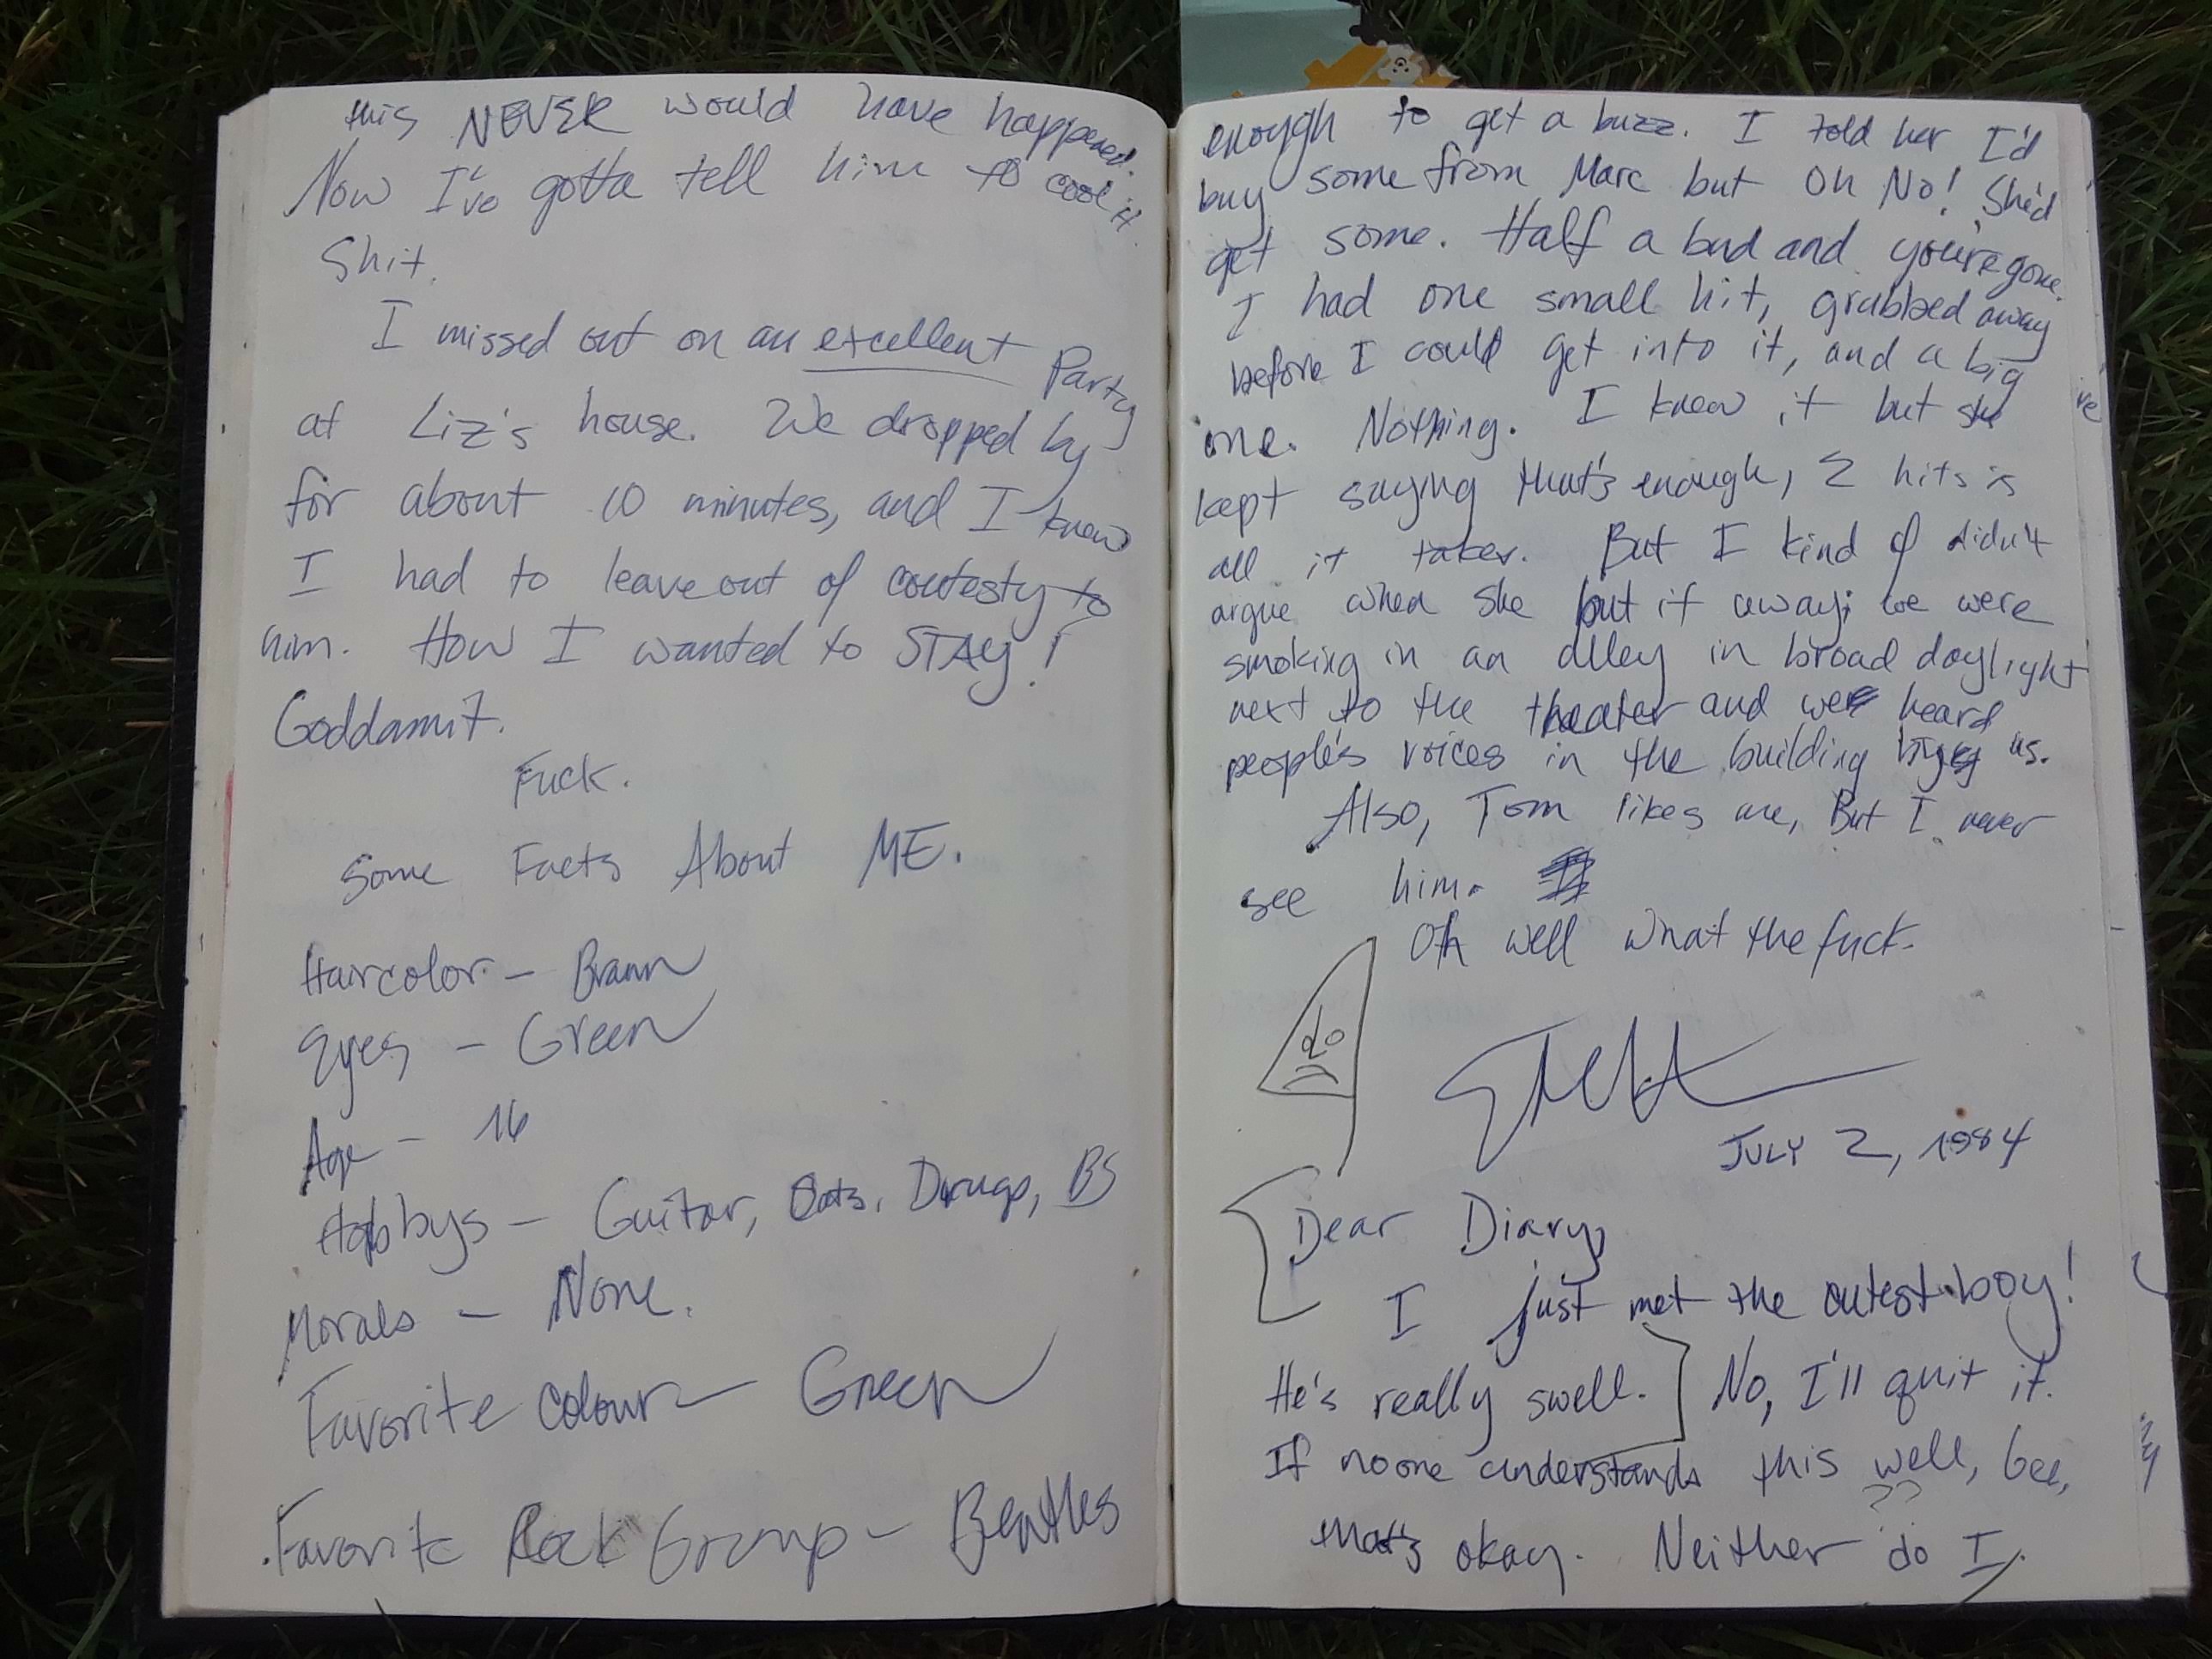 this NEVER would have happened.
Now I've gotta tell him to cool it.
Shit.
I missed out on an excellent Party
at Liz's house. We dropped by
for about 10 minutes, and I knew
I had to leave out of coutesty to
him. How I wanted to STAY!
Goddamit.
Fuck.
Some Facts About ME.
Haircolor - Brown
Eyes - Green
Age - 16
Hobbys - Guitar, Drugs, BS
Morals - None.
Favorite Colour - Green
Favorite Rock Group - Beatles
enough to get a buzz. I told her I'd
buy some from Marc but Oh No! She'd
get some. Half a bud and you're gone.
I had one small hit, grabbed away
before I could get into it, and a big
one. Nothing. I knew it but she
kept saying that's enough, 2 hits is
all it takes. But I kind of didn't
argue when she put it away; we were
smoking in an alley in broad daylight
next to the theater and we heard
people's voices in the building by us.
Also, Tom likes me, But I never
see him.
Oh well what the fuck.
JULY 2, 1984
Dear Diary,
I just met the cutest boy!
He's really swell. No, I'll quit it.
If noone understands this well, Gee,
??
that's okay. Neither do I.